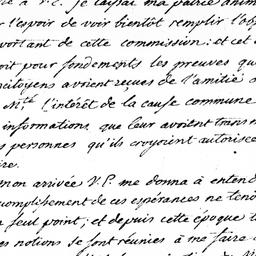 à V.E. je laissai ma patrie anim
l'espoir de voir bientôt remplir l'obj
portant de cette commission: et cet e
oit pour fondements les preuves qu
citoyens avoient reçues de l'amitié d
Mté l'intérêt de la cause commune
informations que leur avoient trans
s personnes qu'ils croyoient autorisée
ire.
mon arrivée V.E. me donna à entend
complissement de ces espérances ne tenoi
n seul point; et depuis cette époque t
es notions se sont réunies à me faire c